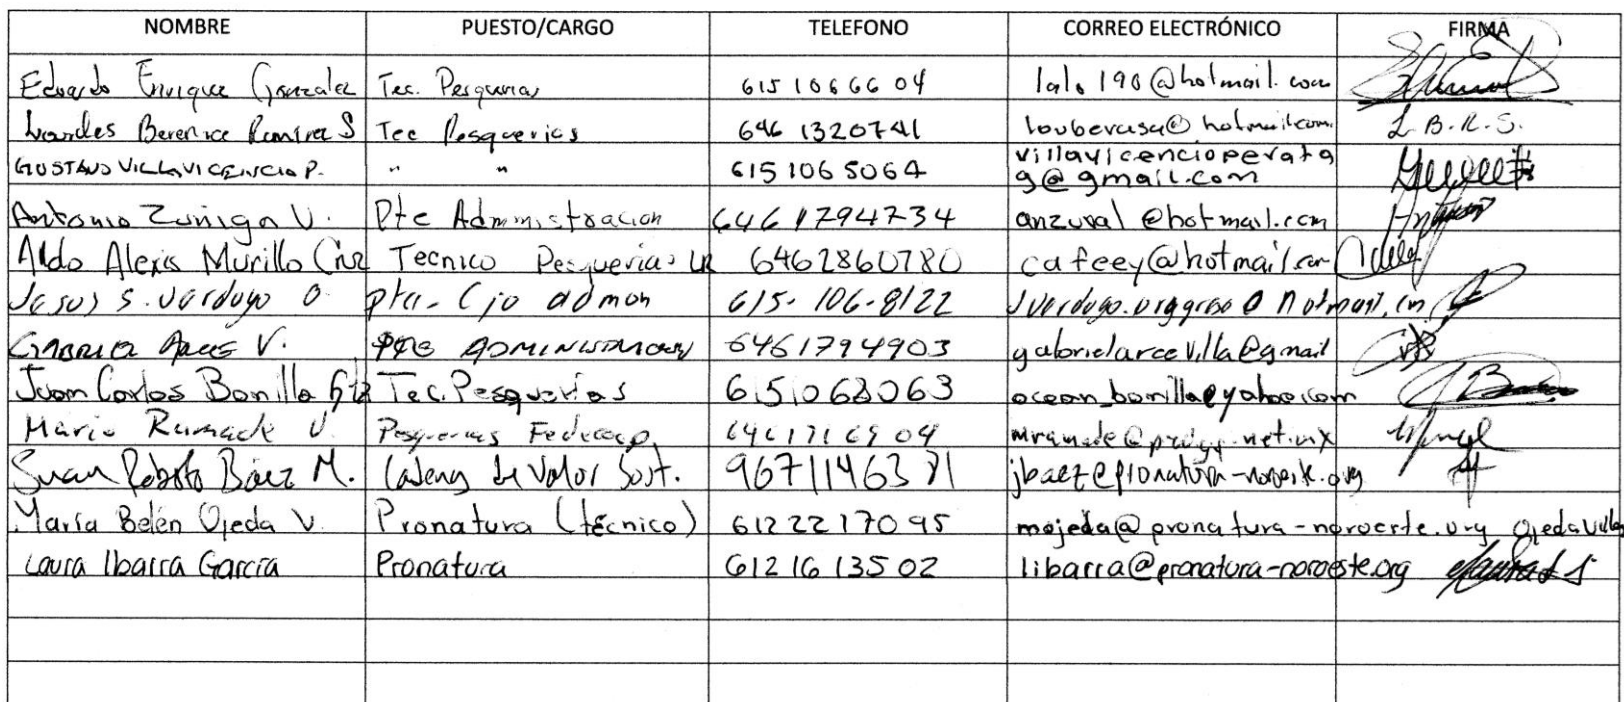 NOMBRE PUESTO/CARGO TELEFONO CORREO ELECTRÓNICO FIRMA
Eduardo Enrique Gonzalez Tec. Pesquerias 615 106 66 04 lalo_190@hotmail.com
Lourdes Berenice Ramirez S Tec Pesquerias 646 1320741 louberasa@hotmail.com L.B.R.S.
GUSTAVO VILLAVICENCIO P. " " 615 106 5064 villavicencioperata
g@gmail.com
Antonio Zuñiga V. Pte Administracion 6461794734 anzuval@hotmail.com
Aldo Alexis Murillo Cruz Tecnico Pesquerias 6462860780 cafeey@hotmail.com
Jesus S. Verdugo O. pte. Cjo admon 615-106-8122
GABRIEL ARCE V. PTE ADMINISTRACION 6461794903 gabrielarcevilla@gmail
Juan Carlos Bonilla Tec. Pesquerias 651068063 ocean_bonilla@yahoo.com
Mario V. Pesquerias Fedecoop. 646 171 69 04
Juan Roberto Báez M. Cadena de Valor Sust. 967 1146381 jbaez@pronatura-noroeste.org
María Belén Ojeda V. Pronatura (técnico) 612 22 170 95 mojeda@pronatura-noroeste.org
Laura Ibarra García Pronatura 612 16 135 02 libarra@pronatura-noroeste.org